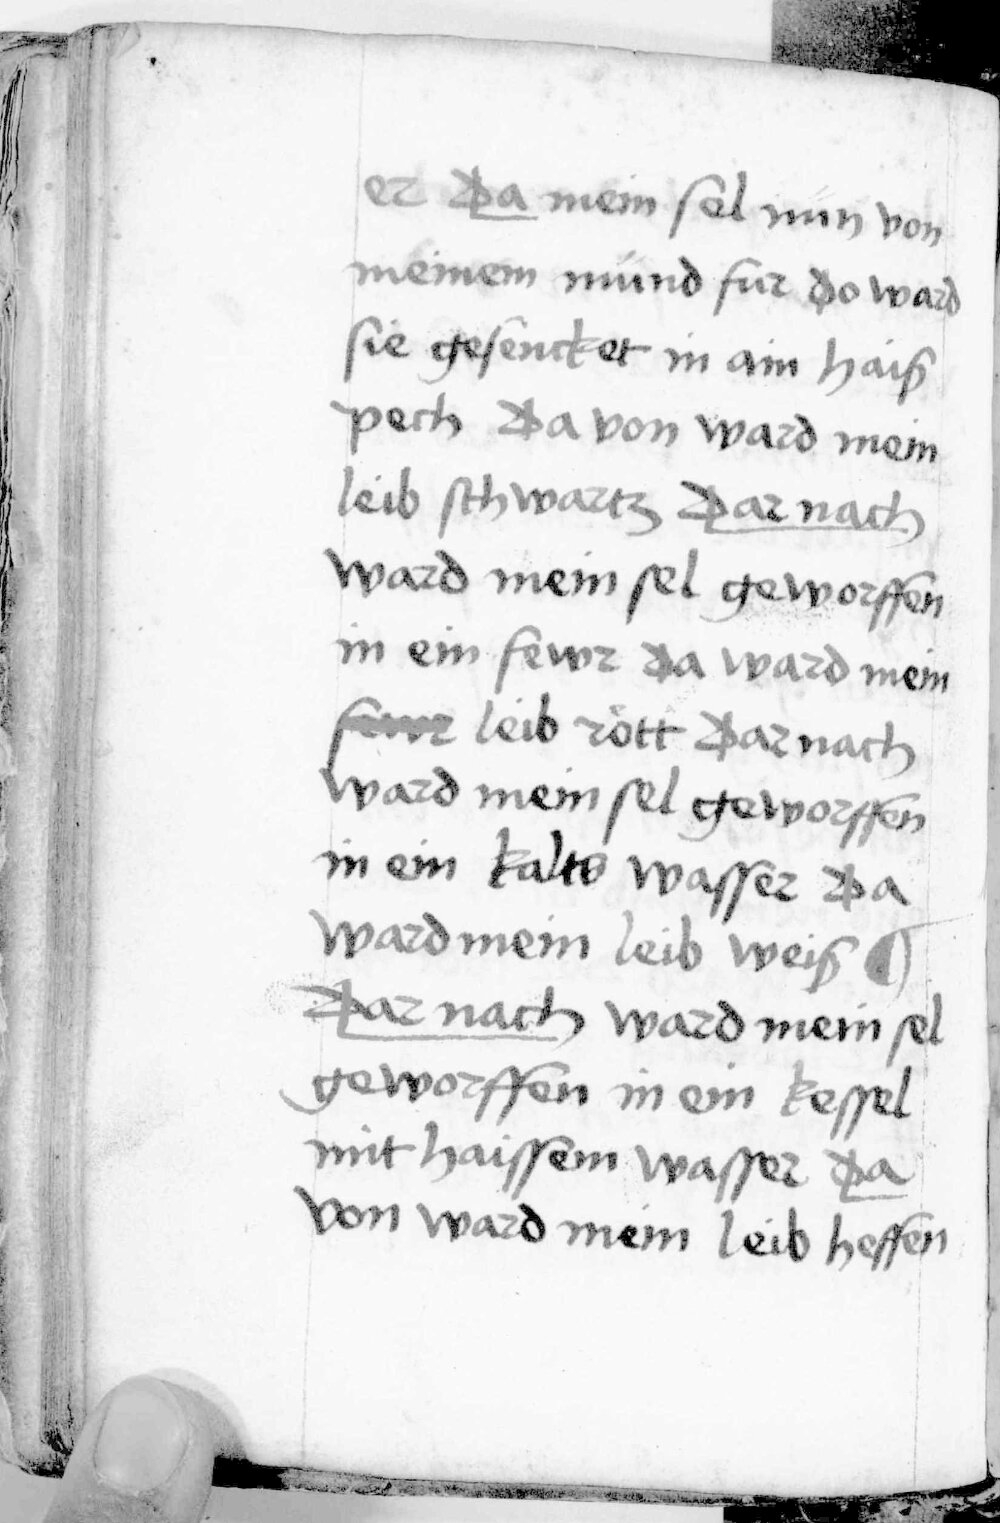 er Da mein sel nun von
meinem mund fur Do ward
sie gesencket in ain haiß
pech Da von ward mein
leib schwartz Dar nach
ward mein sel geworffen
in ein fewr Da ward mein
leib rött Dar nach
ward mein sel geworffen
in ein kalts wasser Da
ward mein leib weiß ¶
Dar nach ward mein sel
geworffen in ein kessel
mit haissem wasser Da
von ward mein leib heffen